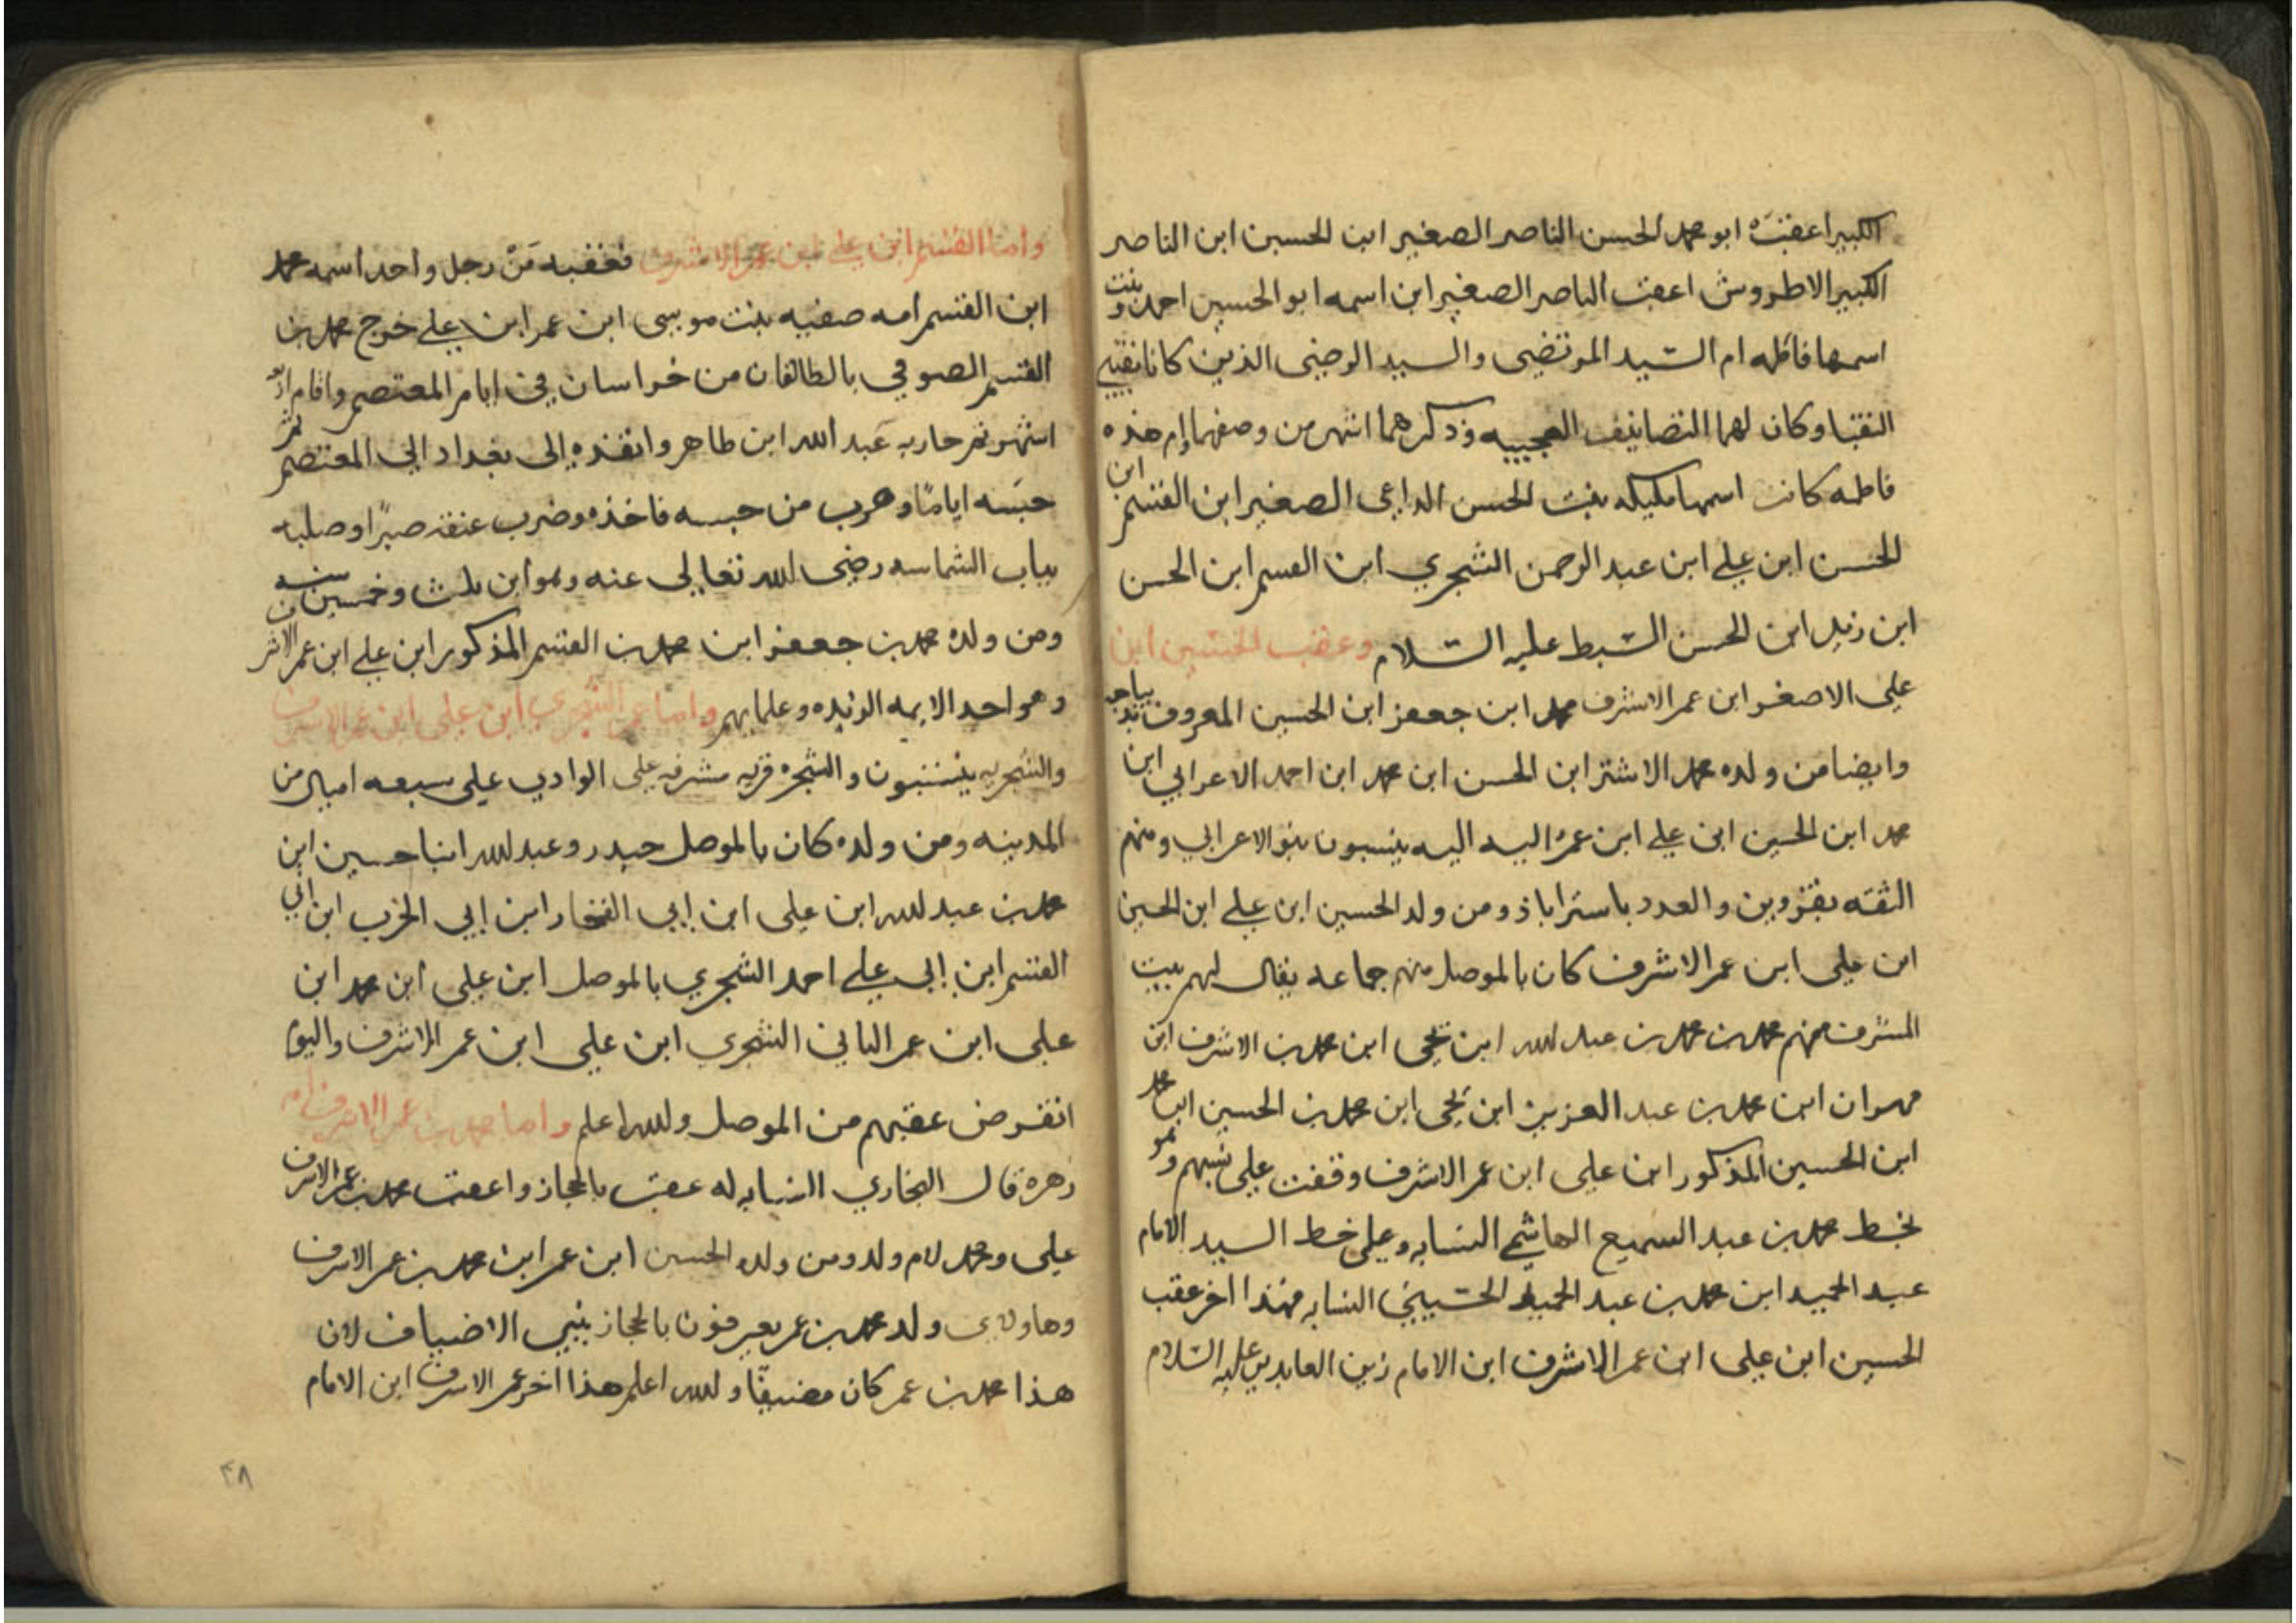 الكبير اعقبه ابو محمد الحسن الناصر الصغير ابن الحسين ابن الناصر
الكبير الاطروش اعقب الناصر الصغير ابن اسمه ابو الحسين احمد وبنت
اسمها فاطمه ام السيد المرتضى والسيد الرضى الذين كانا نقيبى
النقبا وكان لهما التصانيف العجيبه وذكرهما اشهر من وصفهما وام هذه
فاطمه كانت اسمها مليكه بنت الحسن الداعى الصغير ابن القسم ابن
الحسن ابن على ابن عبد الرحمن الشجري ابن القسم ابن الحسن
ابن زيد ابن الحسن السبط عليه السلام وعقب الحسين ابن
على الاصغر ابن عمر الاشرف محمد ابن جعفر ابن الحسين المعروف
وايضا من ولده محمد الاشتر ابن الحسن ابن محمد ابن احمد الاعرابي ابن
محمد ابن الحسين ابن على ابن عمر اليه اليه ينسبون بنو الاعرابي ومنهم
الثقه بقزوين والعدد باستراباذ ومن ولد الحسين ابن على ابن الحسين
ابن على ابن عمر الاشرف كان بالموصل منهم جماعه يقال لهم بيت
المشرف منهم محمد بن محمد بن عبد الله ابن يحيى ابن محمد بن الاشرف ابن
مهوان ابن محمد بن عبد العزيز ابن يحيى ابن محمد بن الحسين ابن محمد
ابن الحسين المذكور ابن على ابن عمر الاشرف وقفت على نسبهم وهو
بخط محمد بن عبد السميع الهاشمي النسابه وعلى خط السيد الامام
عبد الحميد ابن محمد بن عبد الحميد الحسيني النسابه فهذا اخر عقب
الحسين ابن على ابن عمر الاشرف ابن الامام زين العابدين عليه السلام
واما القسم ابن على ابن عمر الاشرف فعقبه من رجل واحد اسمه محمد
ابن القسم امه صفيه بنت موسى ابن عمر ابن على خرج محمد بن
القسم الصوفي بالطالقان من خراسان في ايام المعتصم واقام
اشهر ثم حاربه عبد الله ابن طاهر وانفذه الى بغداد الى المعتصم ثم
حبسه اياما وهرب من حبسه فاخذه وضرب عنقه صبرا وصلبه
بباب الشماسه رضى الله تعالى عنه وهو ابن ثلث وخمسين سنه
ومن ولده محمد بن جعفر ابن محمد بن القسم المذكور ابن على ابن عمر الاشرف
وهو احد الايمه الزيديه وعلمايهم واما عمر الشجري ابن على ابن عمر الاشرف
والشجريه ينسبون والشجره قريه مشرفه على الوادي على سبعه اميال من
المدينه ومن ولده كان بالموصل حيدر وعبد الله ابنا حسين ابن
محمد بن عبد الله ابن على ابن ابي الفخار ابن ابي الحرب ابن ابي
القسم ابن ابي على احمد الشجري بالموصل ابن على ابن محمد ابن
على ابن عمر الثاني الشجري ابن على ابن عمر الاشرف واليوم
انقرض عقبهم من الموصل والله اعلم واما محمد بن عمر الاشرف
زهره قال البخاري النسابه له عقب بالحجاز واعقب محمد بن عمر الاشرف
على ومحمد لام ولد ومن ولده الحسين ابن عمر ابن محمد بن عمر الاشرف
وهاولاى ولد محمد بن عمر يعرفون بالحجاز ببني الاضياف لان
هذا محمد بن عمر كان مضيفا والله اعلم هذا اخر عمر الاشرف ابن الامام
٤٨